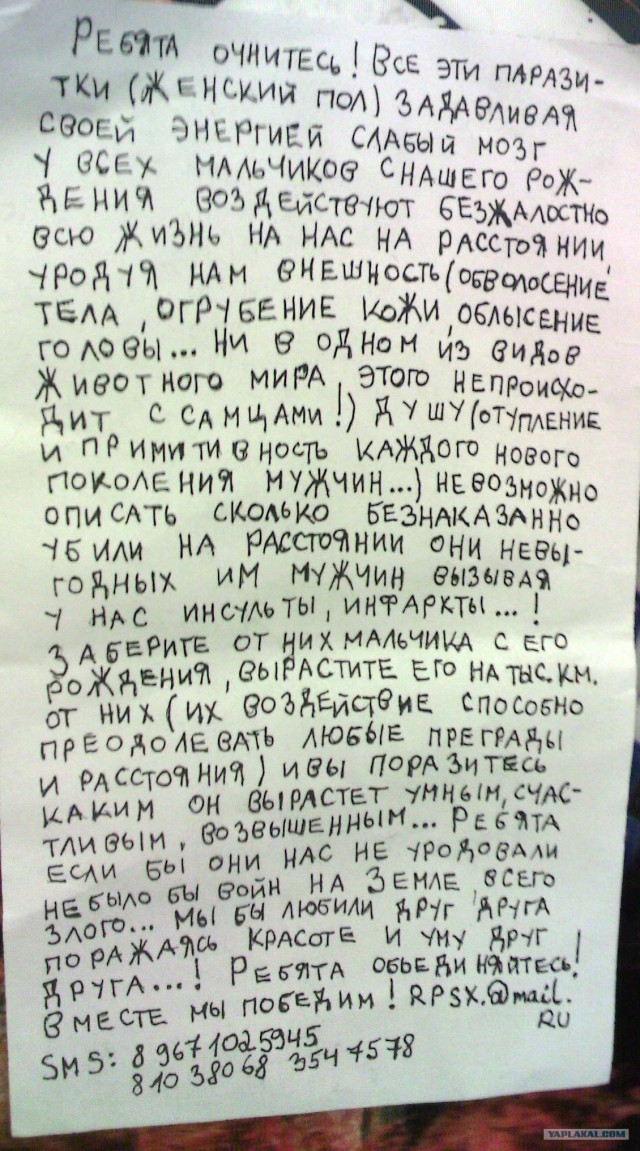 РЕБЯТА ОЧНИТЕСЬ! ВСЕ ЭТИ ПАРАЗИ-
ТКИ (ЖЕНСКИЙ ПОЛ) ЗАДАВЛИВАЯ
СВОЕЙ ЭНЕРГИЕЙ СЛАБЫЙ МОЗГ
У ВСЕХ МАЛЬЧИКОВ СНАШЕГО РОЖ-
ДЕНИЯ ВОЗДЕЙСТВУЮТ БЕЗЖАЛОСТНО
ВСЮ ЖИЗНЬ НА НАС НА РАССТОЯНИИ,
УРОДУЯ НАМ ВНЕШНОСТЬ (ОБВОЛОСЕНИЕ
ТЕЛА, ОГРУБЕНИЕ КОЖИ, ОБЛЫСЕНИЕ
ГОЛОВЫ... НИ В ОДНОМ ИЗ ВИДОВ
ЖИВОТНОГО МИРА, ЭТОГО НЕПРОИСХО-
ДИТ С САМЦАМИ!) ДУШУ (ОТУПЛЕНИЕ
И ПРИМИТИВНОСТЬ КАЖДОГО НОВОГО
ПОКОЛЕНИЯ МУЖЧИН...) НЕВОЗМОЖНО
ОПИСАТЬ СКОЛЬКО БЕЗНАКАЗАННО
УБИЛИ НА РАССТОЯНИИ ОНИ НЕВЫ-
ГОДНЫХ ИМ МУЖЧИН ВЫЗЫВАЯ
У НАС ИНСУЛЬТЫ, ИНФАРКТЫ...!
ЗАБЕРИТЕ ОТ НИХ МАЛЬЧИКА С ЕГО
РОЖДЕНИЯ, ВЫРАСТИТЕ ЕГО НА ТЫС. КМ.
ОТ НИХ (ИХ ВОЗДЕЙСТВИЕ СПОСОБНО
ПРЕОДОЛЕВАТЬ ЛЮБЫЕ ПРЕГРАДЫ
И РАССТОЯНИЯ) ИВЫ ПОРАЗИТЕСЬ
КАКИМ ОН ВЫРАСТЕТ УМНЫМ, СЧАС-
ТЛИВЫМ, ВОЗВЫШЕННЫМ... РЕБЯТА
ЕСЛИ БЫ ОНИ НАС НЕ УРОДОВАЛИ
НЕ БЫЛО БЫ ВОЙН НА ЗЕМЛЕ, ВСЕГО
ЗЛОГО... МЫ БЫ ЛЮБИЛИ ДРУГ ДРУГА
ПОРАЖАЯСЬ КРАСОТЕ И УМУ ДРУГ
ДРУГА...! РЕБЯТА ОБЬЕДИНЯЙТЕСЬ!
ВМЕСТЕ МЫ ПОБЕДИМ! RPSX.@mail.
RU
SMS: 8 967 1025945
810 38068 354 7578
YAPLAKAL.COM